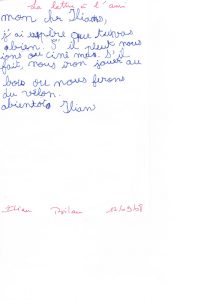 La lettre à l'ami
mon cher Iliade,
j'ai espère que tu vas
abien. S'il pleut nous
irons au ciné mas. S'il
fait, nous iron jouer au
bois ou nous ferons
du vélon.
abientois Ilian
Ilian 12/03/08